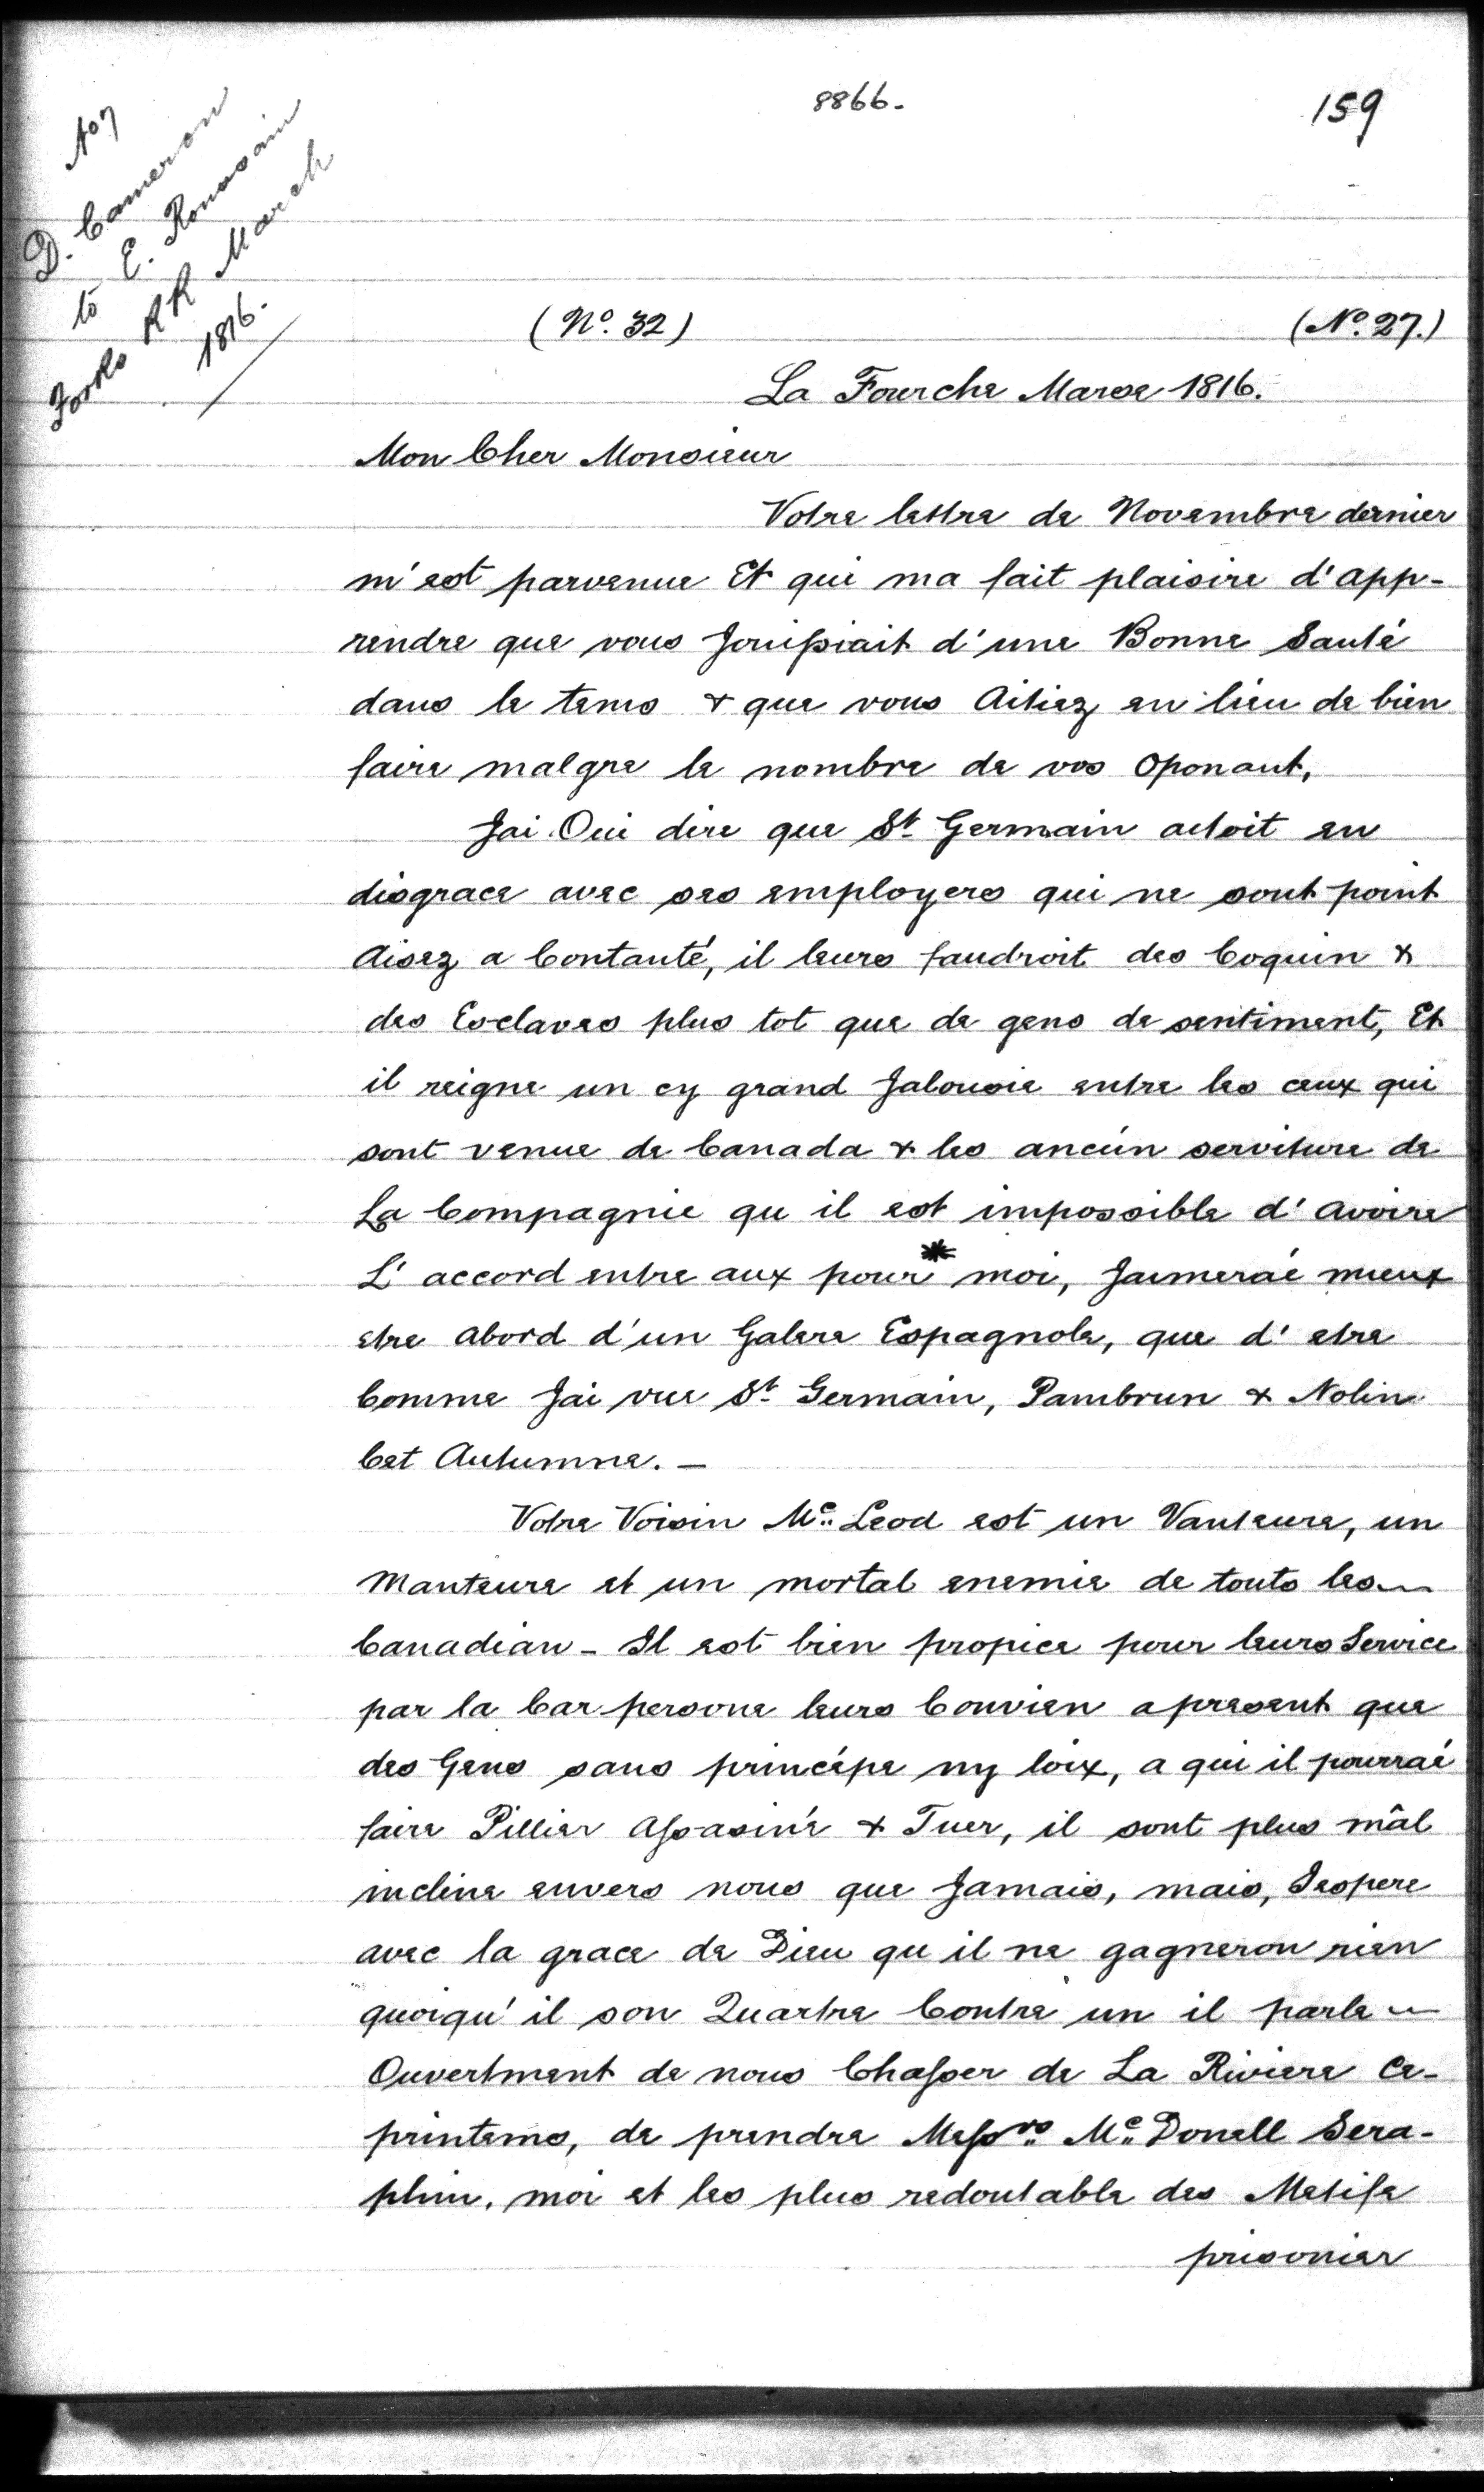 8866.
159
No 7
D. Cameron
to E. Ronssain
Forks RR March
1816.
(No. 32) (No. 27.)
La Fourche Marse 1816.
Mon Cher Monsieur
Votre lettre de Novembre dernier
m'est parvenue Et qui ma fait plaisire d'app-
rendre que vous Jouissiait d'une Bonne Santé
dans le tems & que vous Aitiez en lieu de bien
faire malgre le nombre de vos Oponant,
Jai Oui dire que St Germain aitoit en
disgrace avec ses employers qui ne sont point
Aisez a Contanté, il leurs faudroit des Coquin &
des Esclaves plus tot que de gens de sentiment, Et
il reigne un cy grand Jalousie entre les ceux qui
sont venue de Canada & les anciin serviture de
La Compagnie qu il est impossible d'avoire
L'accord entre aux pour * moi, Jaimeraé mieux
etre abord d'un Galere Espagnole, que d'etre
Comme Jai vue St Germain, Pambrun & Nolin
Cet Autumne. —
Votre Voisin Mc Leod est un Vanteure, un
Manteure et un mortal enemie de touts les
Canadian - Il est bien propice pour leurs Service
par la Car persone leurs Convien apresent que
des Gens sans princépe ny loix, a qui il pourraé
faire Pillier Assasiné & Tuer, il sont plus mâl
incline envers nous que Jamais, mais, Jespere
avec la grace de Dieu qu il ne gagneron rien
quoiqu'il son Quartre Contre un il parle
Ouvertment de nous Chasser de La Riviere Ce-
printems, de prendre Messrs Mc Donell Sera-
phim, moi et les plus redoutable des Metifs
prisonier